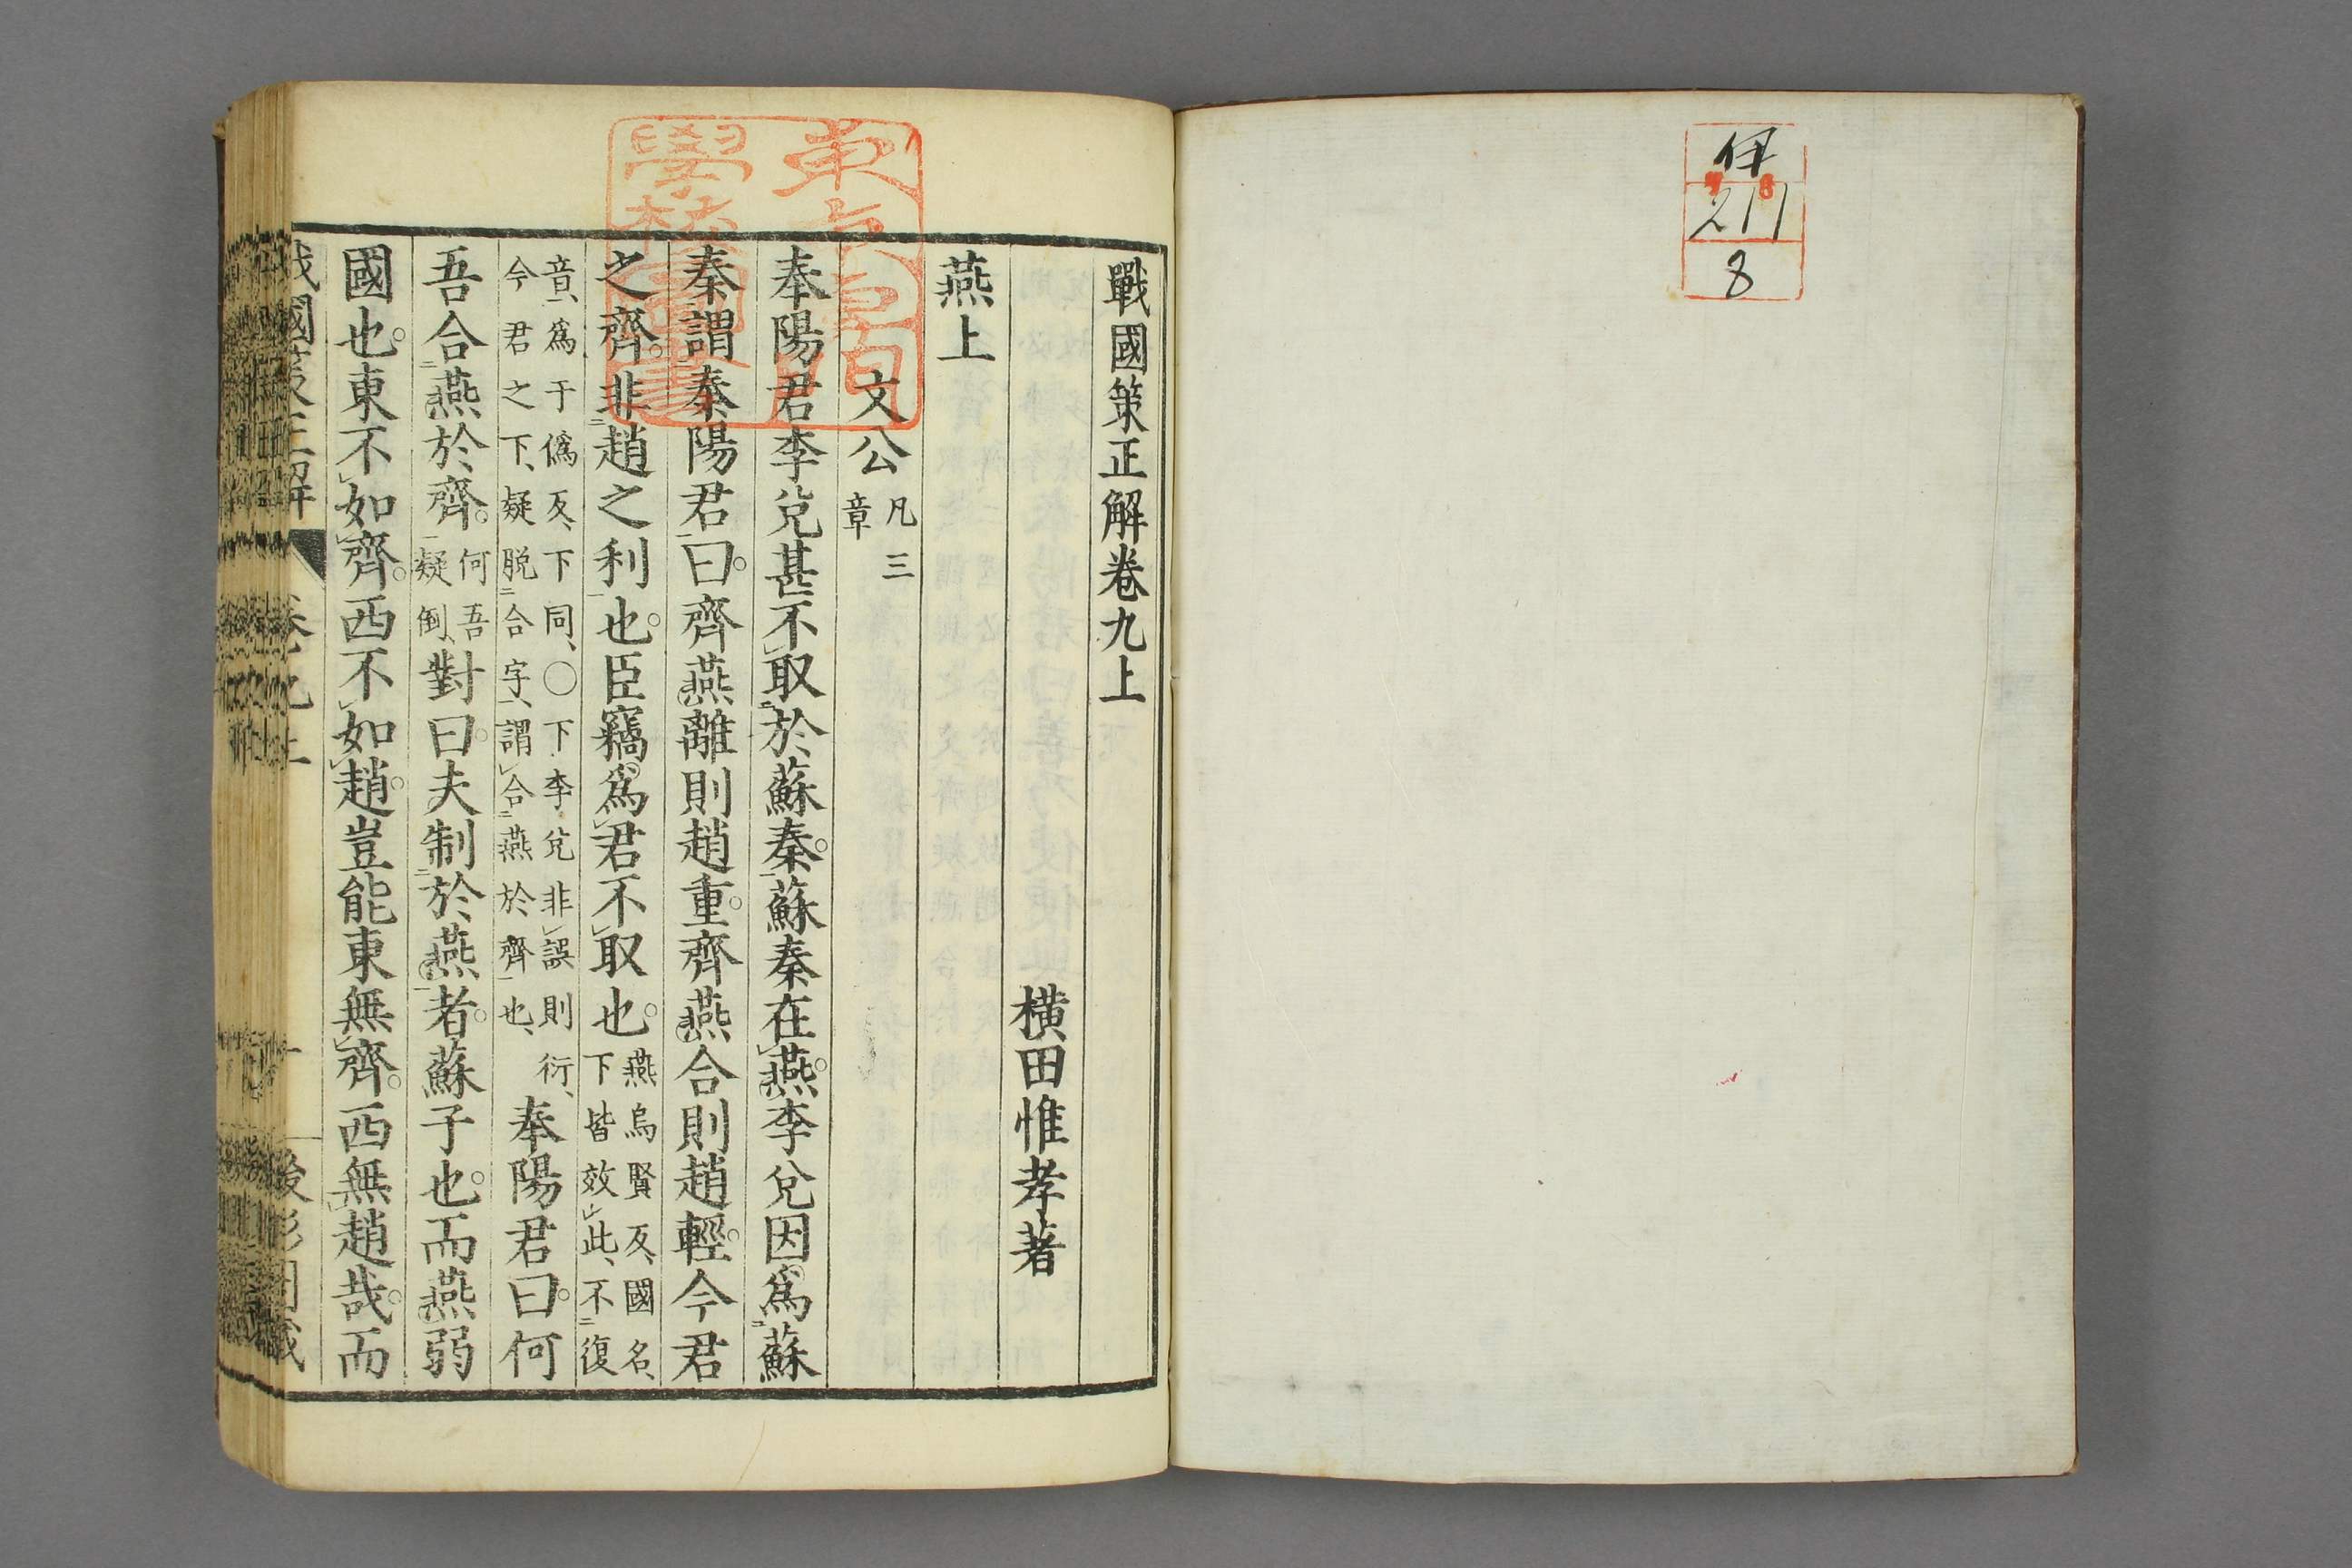 伊
211
8
戰國策正解卷九上
橫田惟孝著
燕上
文公凡三章
奉陽君李兌甚不取於蘇秦蘇秦在燕李兌因爲蘇
秦謂奉陽君曰齊燕離則趙重齊燕合則趙輕今君
之齊非趙之利也臣竊爲君不取也燕烏賢反國名
下皆效此不復
音爲于僞反下同○下李兌非誤則衍
今君之下疑脱合字謂合燕於齊也奉陽君曰何
吾合燕於齊何吾疑倒對曰夫制於燕者蘇子也而燕弱
國也東不如齊西不如趙豈能東無齊西無趙哉而